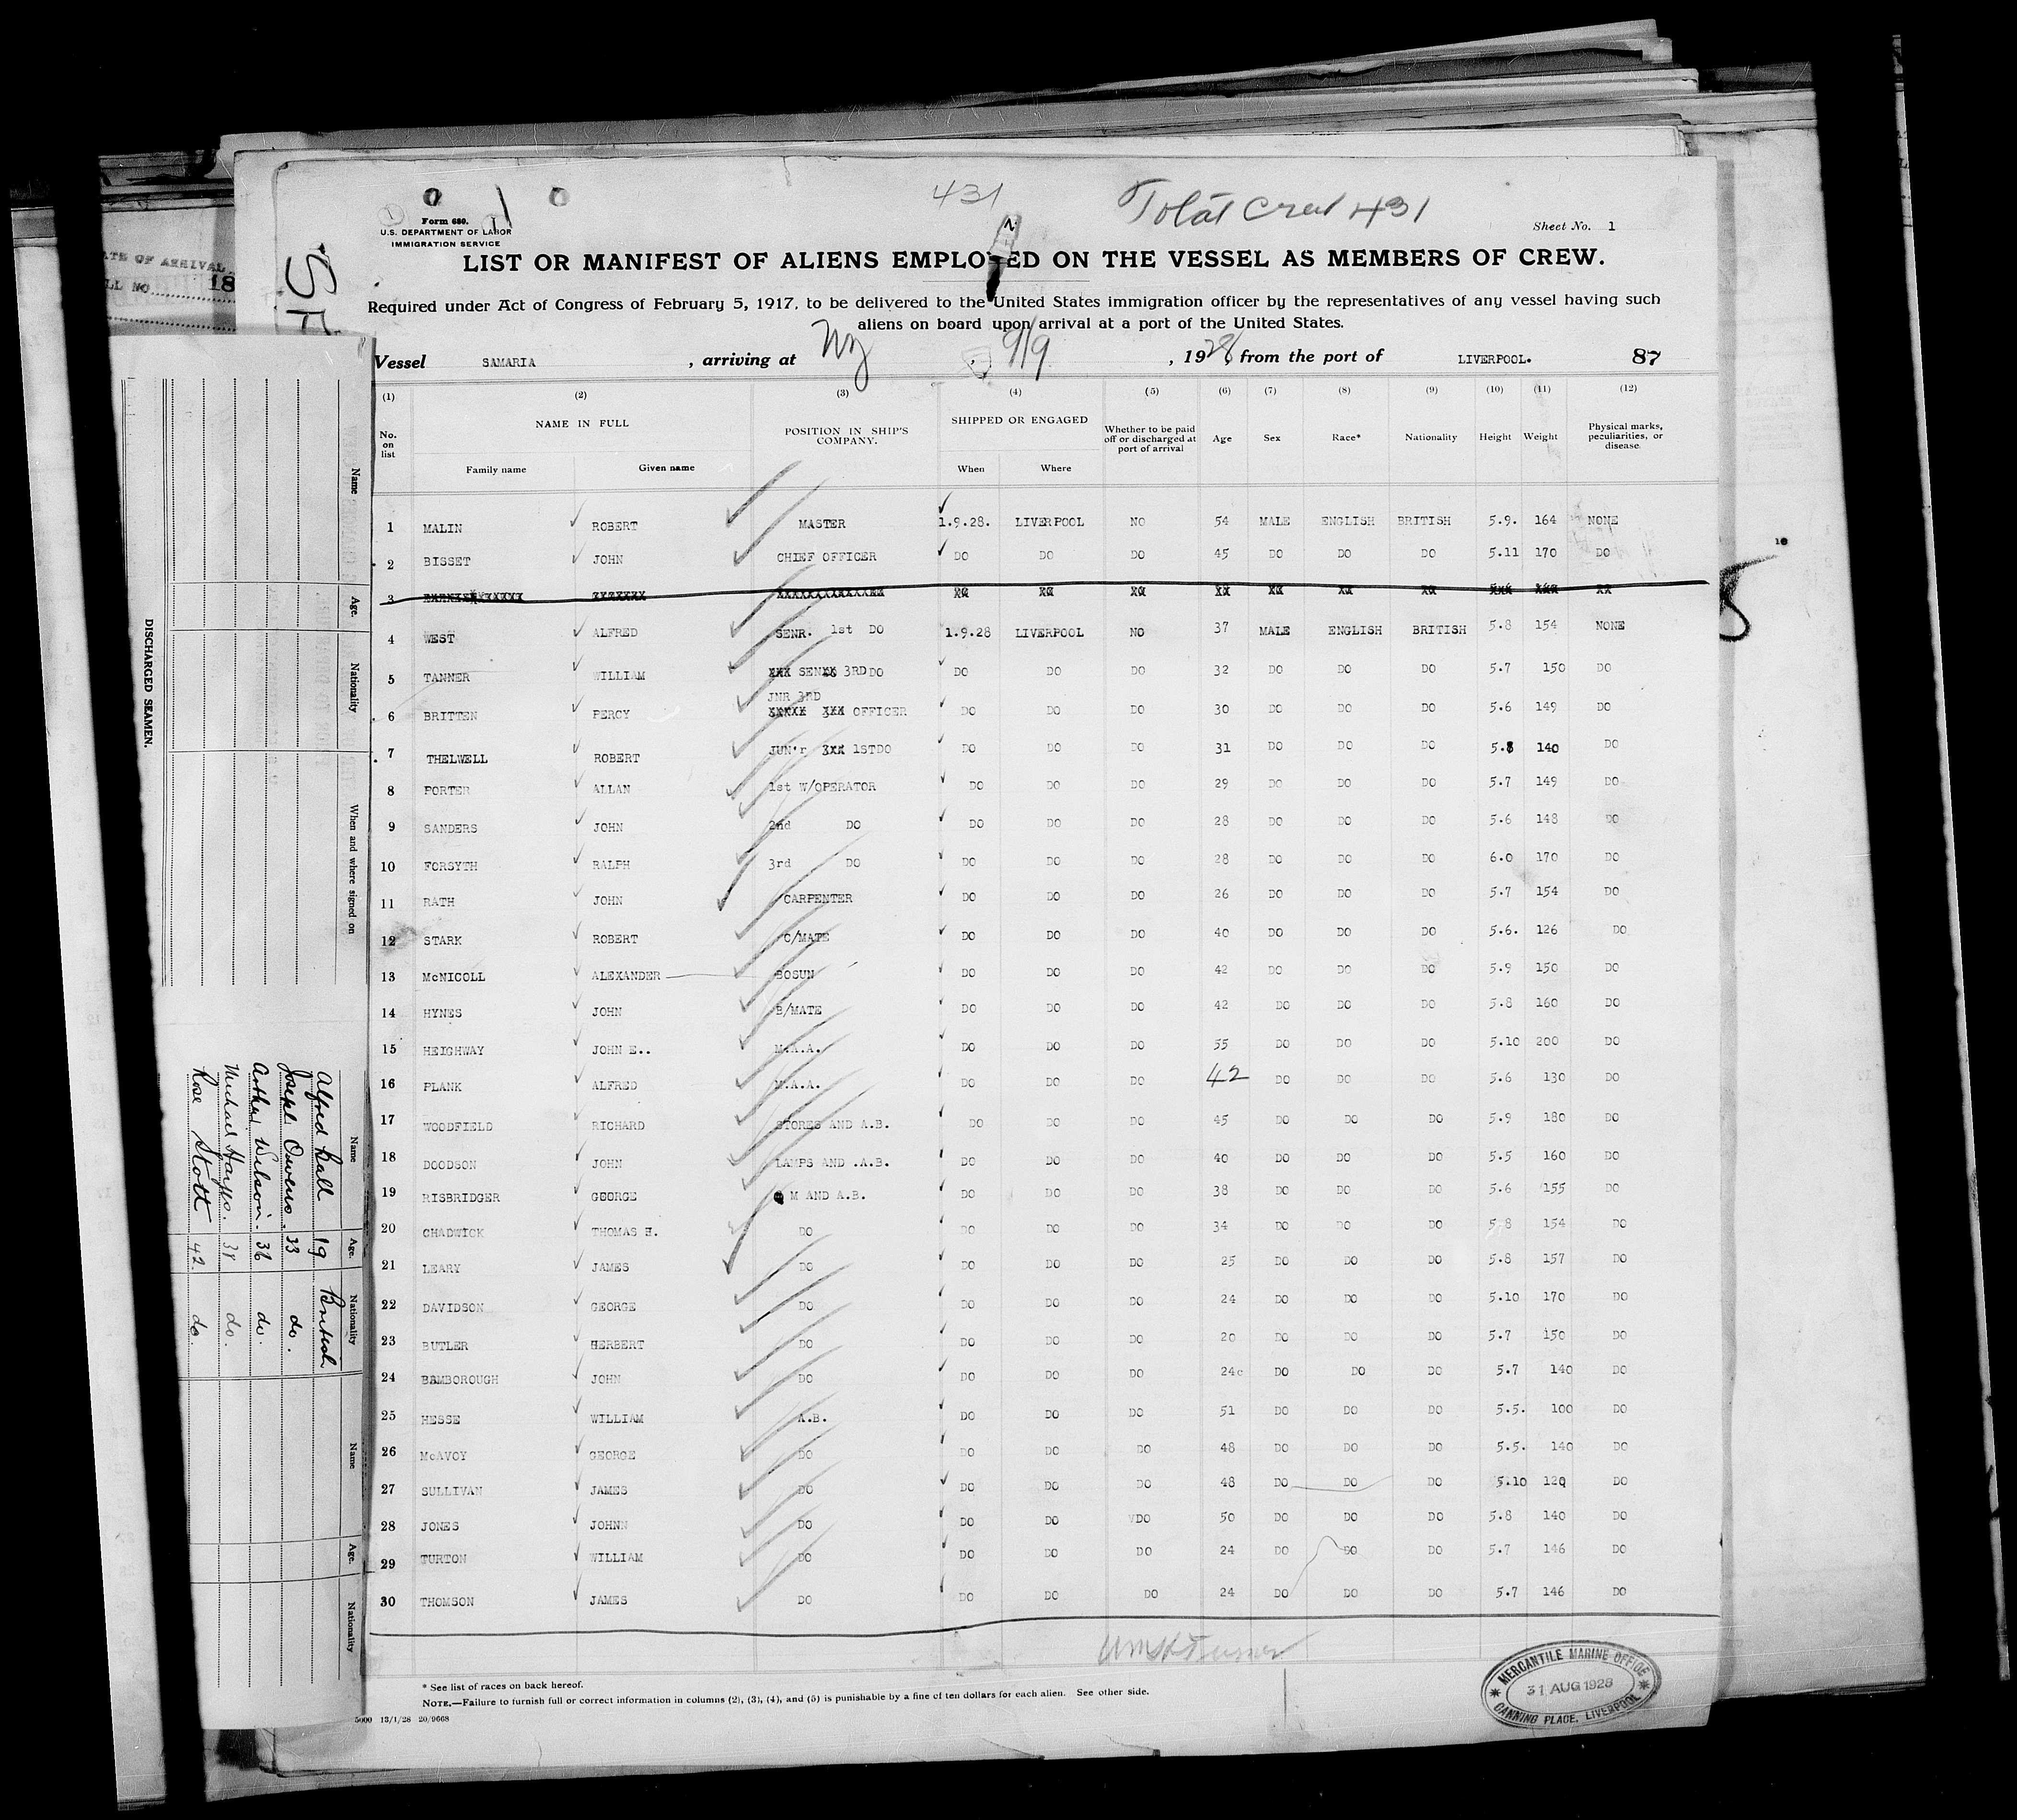 431
Total Crew 431
Form 680.
U.S. DEPARTMENT OF LABOR
IMMIGRATION SERVICE
Sheet No. 1
LIST OR MANIFEST OF ALIENS EMPLOYED ON THE VESSEL AS MEMBERS OF CREW.
Required under Act of Congress of February 5, 1917, to be delivered to the United States immigration officer by the representatives of any vessel having such
aliens on board upon arrival at a port of the United States.
Vessel SAMARIA, arriving at NY, 9/9, 1928, from the port of LIVERPOOL. 87
(1) (2) (3) (4) (5) (6) (7) (8) (9) (10) (11) (12)
No. on list NAME IN FULL POSITION IN SHIP'S COMPANY. SHIPPED OR ENGAGED Whether to be paid off or discharged at port of arrival Age Sex Race* Nationality Height Weight Physical marks, peculiarities, or disease.
Family name Given name When Where
1 MALIN ROBERT MASTER 1.9.28. LIVERPOOL NO 54 MALE ENGLISH BRITISH 5.9. 164 NONE
2 BISSET JOHN CHIEF OFFICER DO DO DO 45 DO DO DO 5.11 170 DO
3
4 WEST ALFRED SENR. 1st DO 1.9.28 LIVERPOOL NO 37 MALE ENGLISH BRITISH 5.8 154 NONE
5 TANNER WILLIAM XXX SENXX 3RD DO DO DO DO 32 DO DO DO 5.7 150 DO
JNR 3RD
6 BRITTEN PERCY XXXXX 3XX OFFICER DO DO DO 30 DO DO DO 5.6 149 DO
7 THELWELL ROBERT JUN'r 3XX 1STDO DO DO DO 31 DO DO DO 5.8 140 DO
8 PORTER ALLAN 1st W/OPERATOR DO DO DO 29 DO DO DO 5.7 149 DO
9 SANDERS JOHN 2nd DO DO DO DO 28 DO DO DO 5.6 148 DO
10 FORSYTH RALPH 3rd DO DO DO DO 28 DO DO DO 6.0 170 DO
11 RATH JOHN CARPENTER DO DO DO 26 DO DO DO 5.7 154 DO
12 STARK ROBERT C/MATE DO DO DO 40 DO DO DO 5.6. 126 DO
13 McNICOLL ALEXANDER BOSUN DO DO DO 42 DO DO DO 5.9 150 DO
14 HYNES JOHN B/MATE DO DO DO 42 DO DO DO 5.8 160 DO
15 HEIGHWAY JOHN E.. M.A.A. DO DO DO 55 DO DO DO 5.10 200 DO
16 PLANK ALFRED M.A.A. DO DO DO 42 DO DO DO 5.6 130 DO
17 WOODFIELD RICHARD STORES AND A.B. DO DO DO 45 DO DO DO 5.9 180 DO
18 DOODSON JOHN LAMPS AND .A.B. DO DO DO 40 DO DO DO 5.5 160 DO
19 RISBRIDGER GEORGE M AND A.B. DO DO DO 38 DO DO DO 5.6 155 DO
20 CHADWICK THOMAS H. DO DO DO DO 34 DO DO DO 5.8 154 DO
21 LEARY JAMES DO DO DO DO 25 DO DO DO 5.8 157 DO
22 DAVIDSON GEORGE DO DO DO DO 24 DO DO DO 5.10 170 DO
23 BUTLER HERBERT DO DO DO DO 20 DO DO DO 5.7 150 DO
24 BAMBOROUGH JOHN DO DO DO DO 24c DO DO DO 5.7 140 DO
25 HESSE WILLIAM A.B. DO DO DO 51 DO DO DO 5.5. 100 DO
26 McAVOY GEORGE DO DO DO DO 48 DO DO DO 5.5. 140 DO
27 SULLIVAN JAMES DO DO DO DO 48 DO DO DO 5.10 120 DO
28 JONES JOHNN DO DO DO DO 50 DO DO DO 5.8 140 DO
29 TURTON WILLIAM DO DO DO DO 24 DO DO DO 5.7 146 DO
30 THOMSON JAMES DO DO DO DO 24 DO DO DO 5.7 146 DO
* See list of races on back hereof.
NOTE.—Failure to furnish full or correct information in columns (2), (3), (4), and (5) is punishable by a fine of ten dollars for each alien. See other side.
5000 13/1/28 20/9668
MERCANTILE MARINE OFFICE
31 AUG 1928
CANNING PLACE, LIVERPOOL
ATE OF ARRIVAL
LL NO 18
DISCHARGED SEAMEN.
Name Age. Nationality When and where signed on
Name Age. Nationality
Alfred Hall 19 British
Joseph Owens 33 do.
Arthur Wilson. 36 do.
Michael 38 do.
Rose Stott 42 do.
Name Age. Nationality